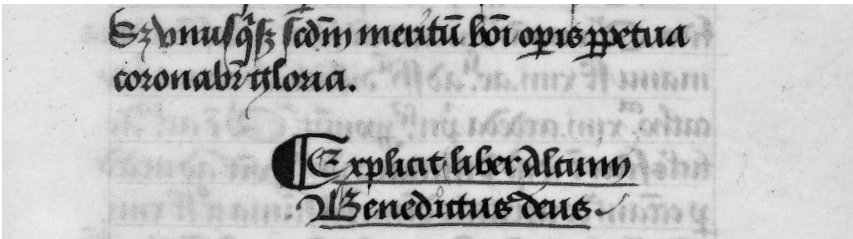 Sꝫ vnusqⁱſꝫ ſcđm meritū boī oꝑis ꝑpetua
coronabr̄ gloria.
¶ Explicit liber Alcuini
Benedictus deus